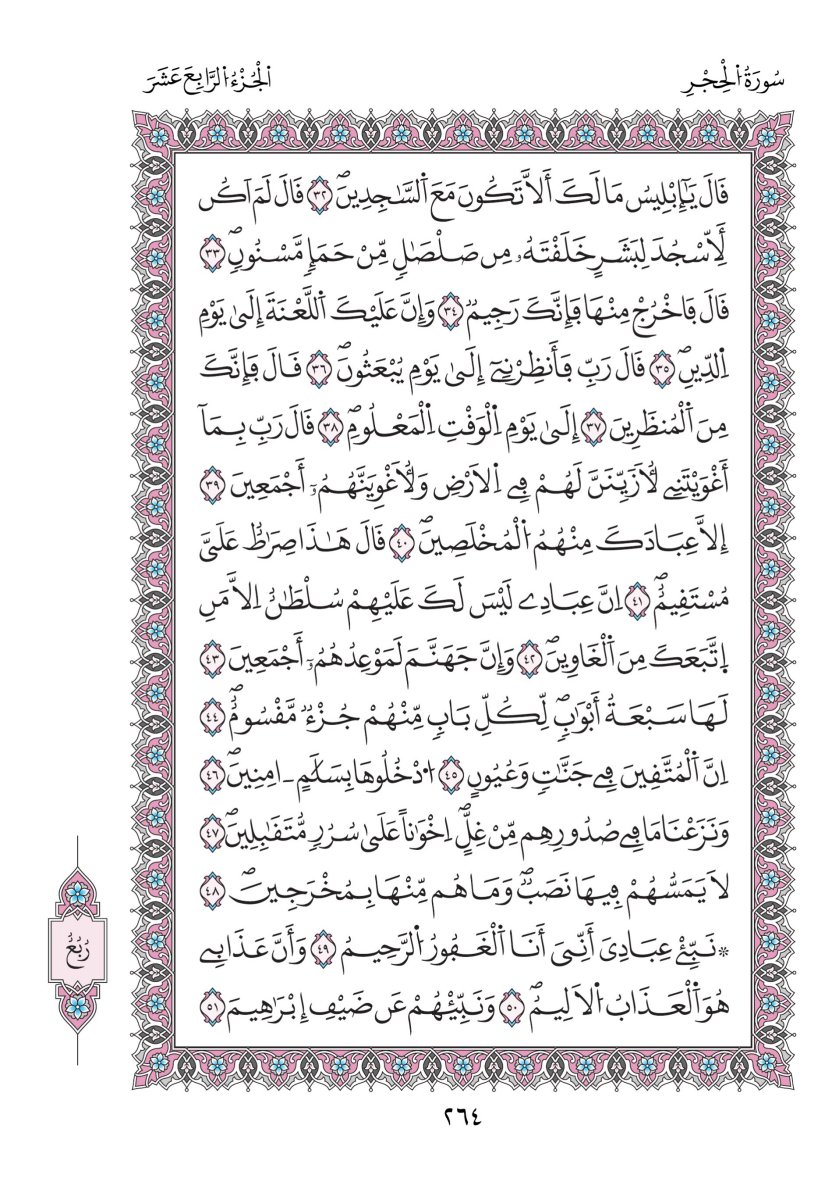 سُورَةُ اُ۬لْحِجْرِ
اَ۬لْجُزْءُ اُ۬لرَّابِعَ عَشَرَ
قَالَ يَٰٓإِبْلِيسُ مَا لَكَ أَلَّا تَكُونَ مَعَ اَ۬لسَّٰجِدِينَۖ ٣٢ قَالَ لَمَ اَكُن
لِّأَسْجُدَ لِبَشَرٍ خَلَقْتَهُۥ مِن صَلْصَٰلٖ مِّنْ حَمَإٖ مَّسْنُونٖۖ ٣٣
قَالَ فَاخْرُجْ مِنْهَا فَإِنَّكَ رَجِيمٞ ٣٤ وَإِنَّ عَلَيْكَ اَ۬للَّعْنَةَ إِلَىٰ يَوْمِ
اِ۬لدِّينِۖ ٣٥ قَالَ رَبِّ فَأَنظِرْنِےٓ إِلَىٰ يَوْمِ يُبْعَثُونَۖ ٣٦ قَالَ فَإِنَّكَ
مِنَ اَ۬لْمُنظَرِينَ ٣٧ إِلَىٰ يَوْمِ اِ۬لْوَقْتِ اِ۬لْمَعْلُومِۖ ٣٨ قَالَ رَبِّ بِمَآ
أَغْوَيْتَنِے لَأُزَيِّنَنَّ لَهُمْ فِے اِ۬لَارْضِ وَلَأُغْوِيَنَّهُمُۥٓ أَجْمَعِينَ ٣٩
إِلَّا عِبَادَكَ مِنْهُمُ اُ۬لْمُخْلَصِينَۖ ٤٠ قَالَ هَٰذَا صِرَٰطٌ عَلَيَّ
مُسْتَقِيمٌۖ ٤١ اِنَّ عِبَادِے لَيْسَ لَكَ عَلَيْهِمْ سُلْطَٰنٌ اِلَّا مَنِ
اِ۪تَّبَعَكَ مِنَ اَ۬لْغَاوِينَۖ ٤٢ وَإِنَّ جَهَنَّمَ لَمَوْعِدُهُمُۥٓ أَجْمَعِينَ ٤٣
لَهَا سَبْعَةُ أَبْوَٰبٖۖ لِّكُلِّ بَابٖ مِّنْهُمْ جُزْءٞ مَّقْسُومٌۖ ٤٤
اِنَّ اَ۬لْمُتَّقِينَ فِے جَنَّٰتٖ وَعُيُونٍ ٤٥ اُ۟دْخُلُوهَا بِسَلَٰمٍ ـ امِنِينَۖ ٤٦
وَنَزَعْنَا مَا فِے صُدُورِهِم مِّنْ غِلٍّۖ اِخْوَٰناً عَلَىٰ سُرُرٖ مُّتَقَٰبِلِينَۖ ٤٧
لَا يَمَسُّهُمْ فِيهَا نَصَبٞۖ وَمَا هُم مِّنْهَا بِمُخْرَجِينَۖ ٤٨
۞ نَبِّۓْ عِبَادِيَ أَنِّيَ أَنَا اَ۬لْغَفُورُ اُ۬لرَّحِيمُ ٤٩ وَأَنَّ عَذَابِے
هُوَ اَ۬لْعَذَابُ اُ۬لَالِيمُۖ ٥٠ وَنَبِّئْهُمْ عَن ضَيْفِ إِبْرَٰهِيمَ ٥١
رُبُعُ
٢٦٤